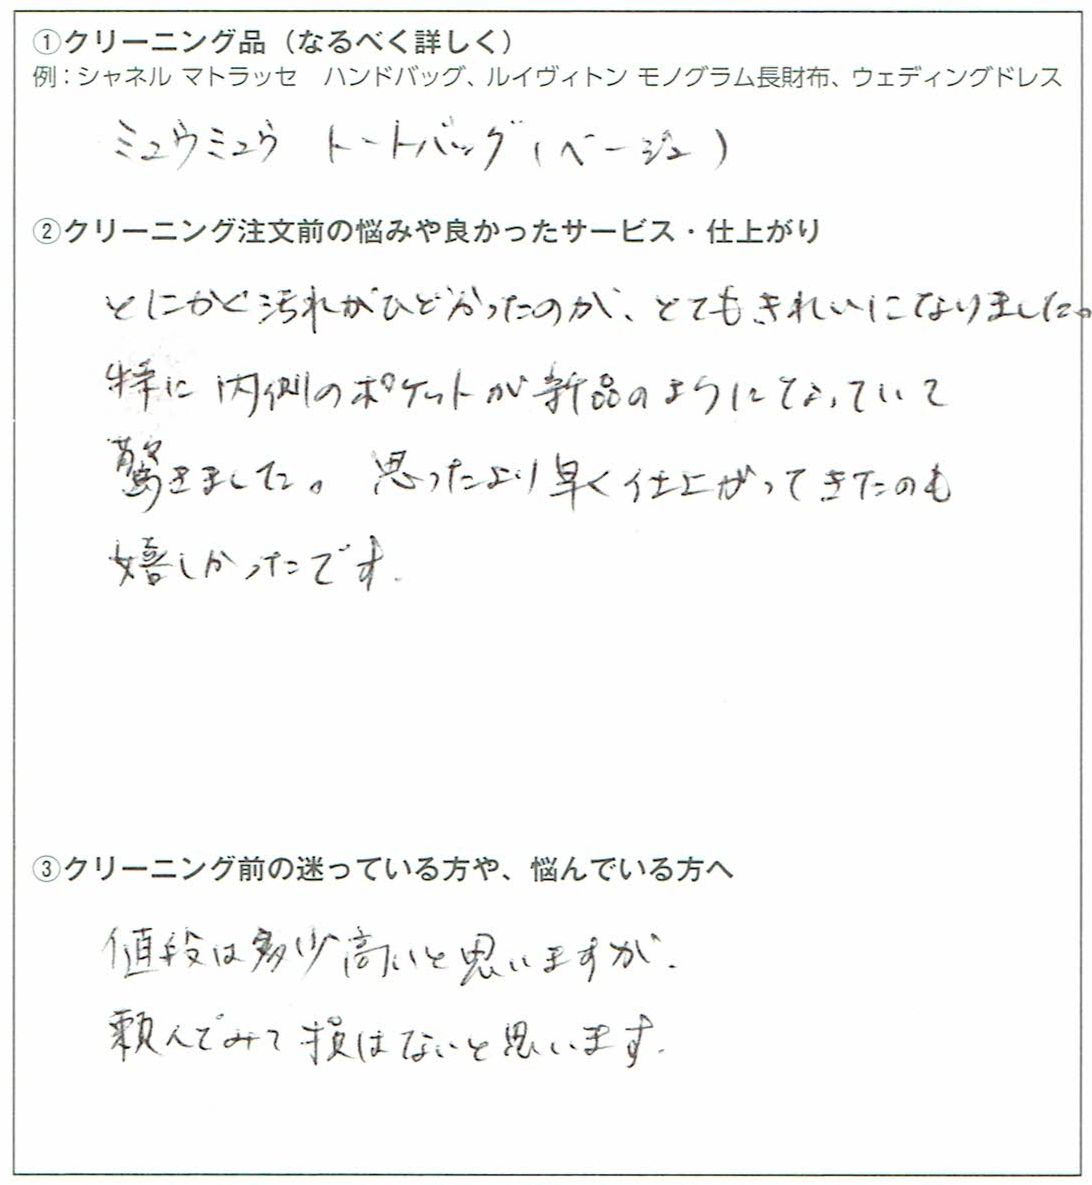 ①クリーニング品（なるべく詳しく）
例：シャネル マトラッセ　ハンドバッグ、ルイヴィトン モノグラム長財布、ウェディングドレス
ミュウミュウ　トートバッグ（ベージュ）
②クリーニング注文前の悩みや良かったサービス・仕上がり
とにかく汚れがひどかったのが、とてもきれいになりました。
特に内側のポケットが新品のようになっていて
驚きました。思ったより早く仕上がってきたのも
嬉しかったです.
③クリーニング前の迷っている方や、悩んでいる方へ
値段は多少高いと思いますが.
頼んでみて損はないと思います.